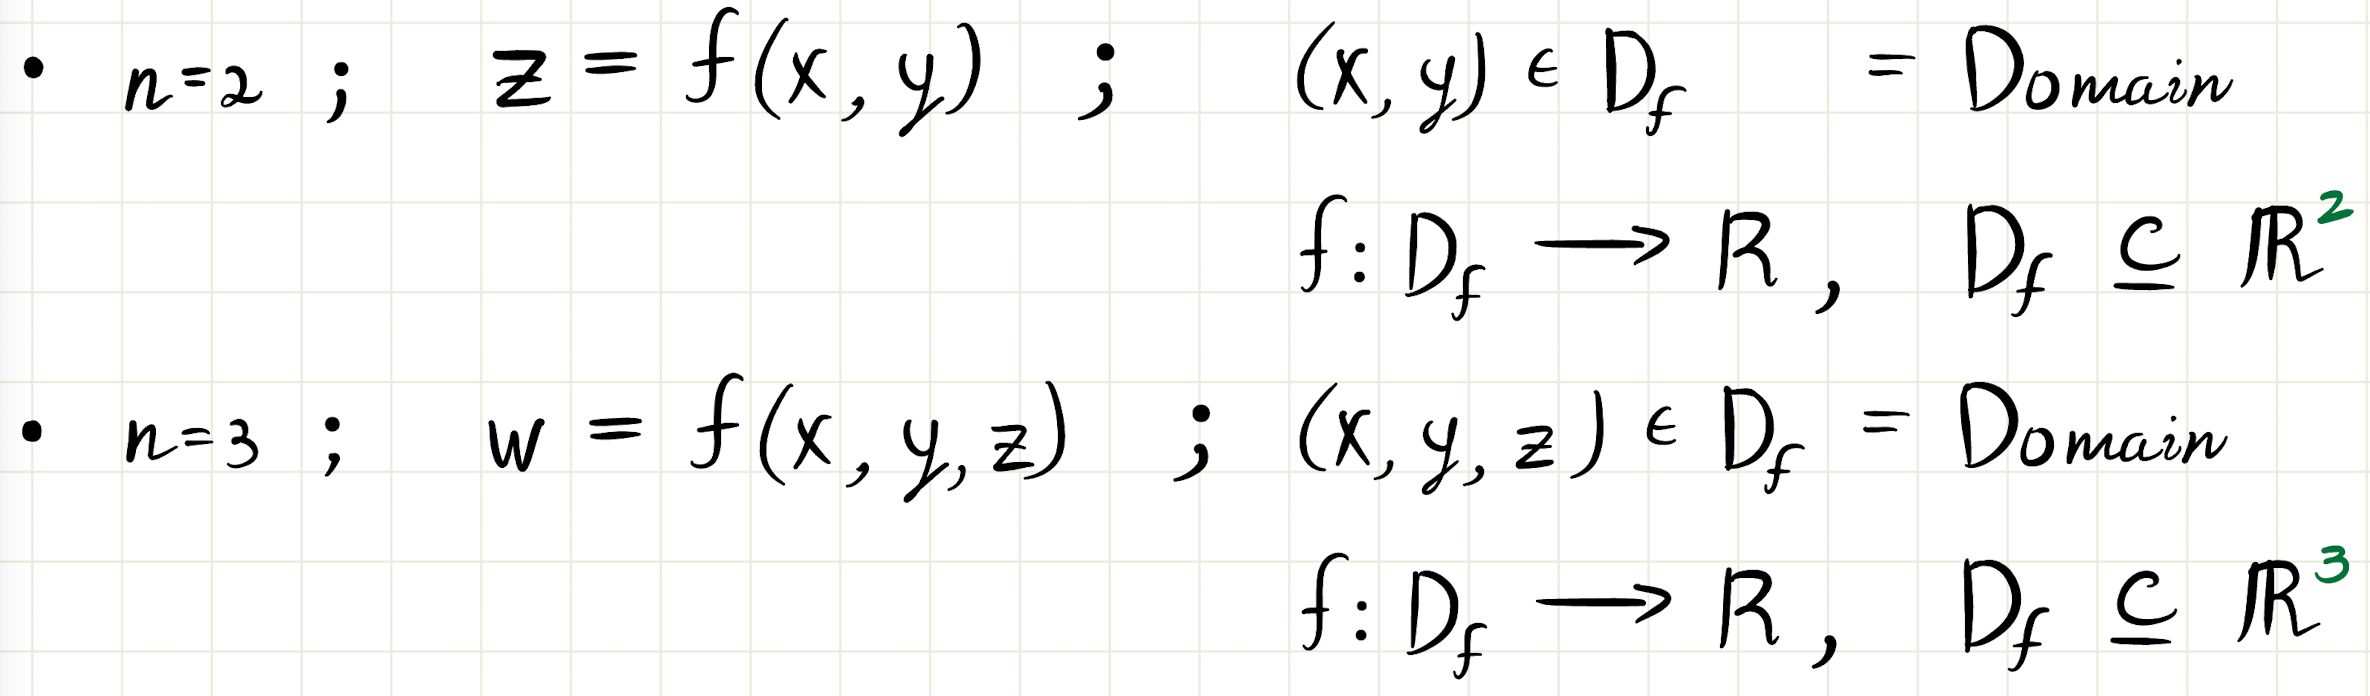 • n=2 ; z = f(x, y) ; (x, y) ∈ D_f = Domain
f: D_f ⟶ R , D_f ⊆ ℝ²
• n=3 ; w = f(x, y, z) ; (x, y, z) ∈ D_f = Domain
f: D_f ⟶ R , D_f ⊆ ℝ³